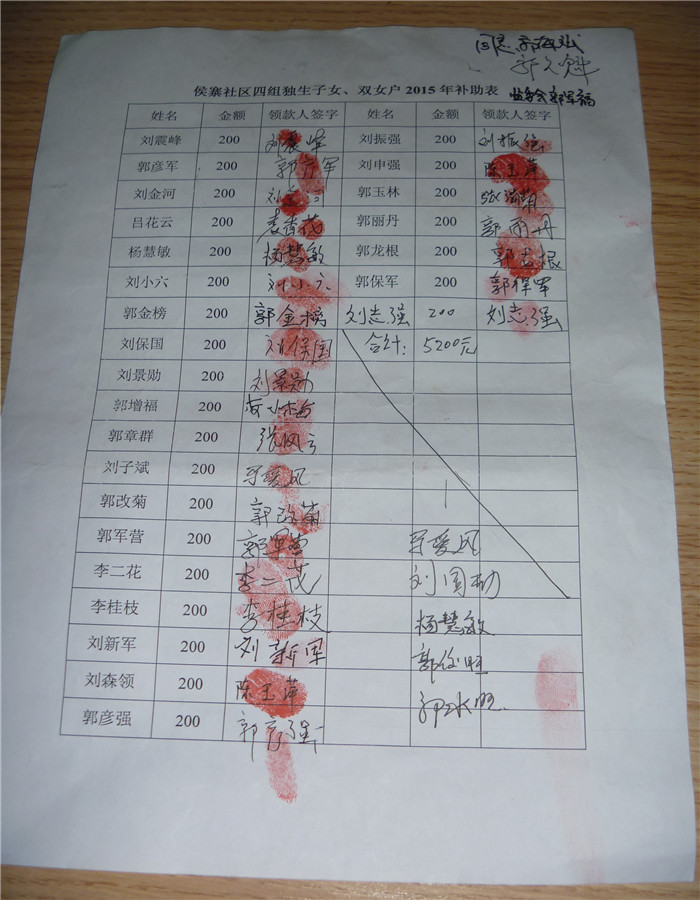 同意
侯寨社区四组独生子女、双女户 2015 年补助表
监委会郭军福
姓名 金额 领款人签字 姓名 金额 领款人签字
刘震峰 200 刘震峰 刘振强 200 刘振强
郭彦军 200 郭彦军 刘申强 200 陈玉萍
刘金河 200 刘金河 郭玉林 200
吕花云 200 袁香花 郭丽丹 200 郭丽丹
杨慧敏 200 杨慧敏 郭龙根 200 郭龙根
刘小六 200 刘小六 郭保军 200 郭保军
郭金榜 200 郭金榜 刘志强 200 刘志强
刘保国 200 刘保国 合计: 5200元
刘景勋 200 刘景勋
郭增福 200
郭章群 200 张凤云
刘子斌 200 爱风
郭改菊 200 郭改菊
郭军营 200 郭军营 爱风
李二花 200 李二花 刘国勋
李桂枝 200 李桂枝 杨慧敏
刘新军 200 刘新军
刘森领 200 陈玉萍
郭彦强 200 郭彦强